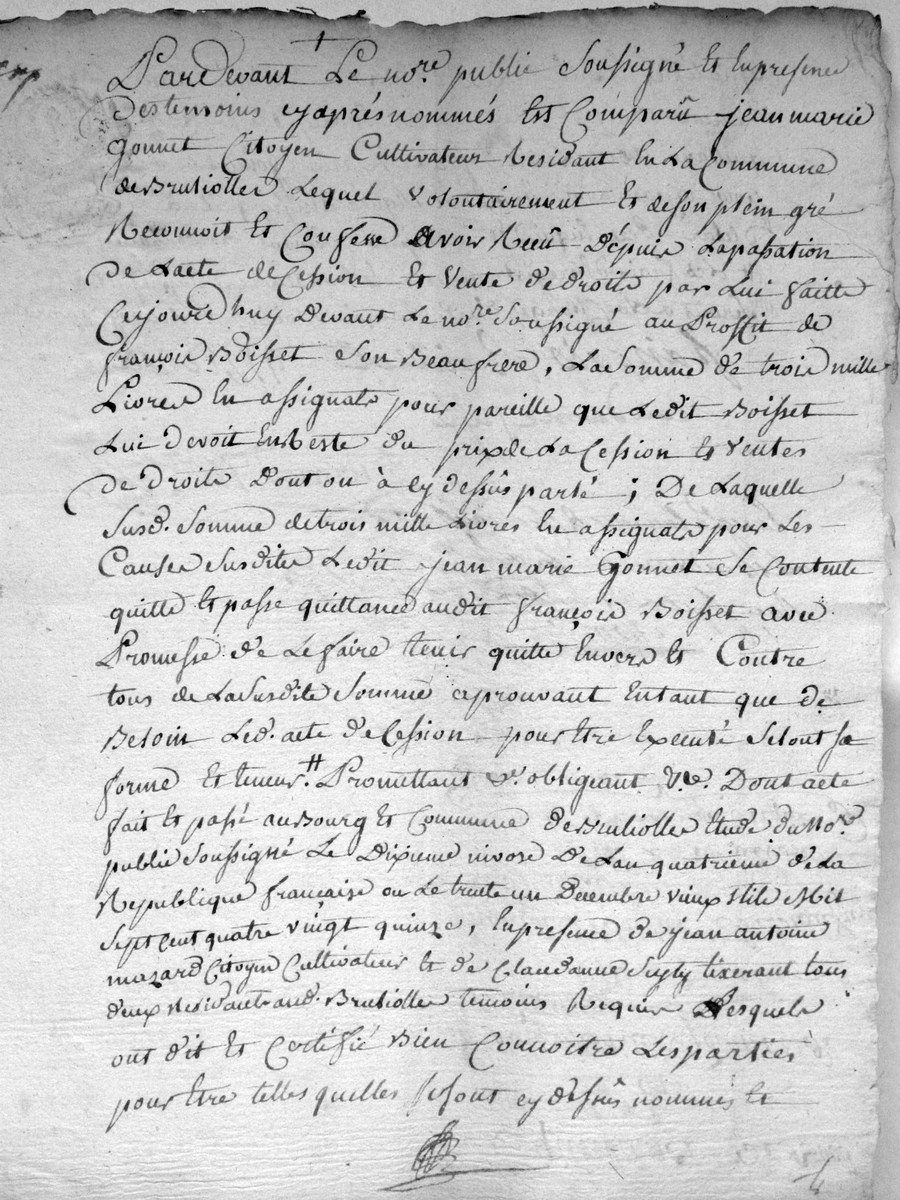 Pardevant Le no.re public Soussigné Et Enpresence
destemoins cyaprésnommés Est Comparû jeanmarie
gonnet Citoyen Cultivateur Residant En La Commune
deBrusiolle Lequel volontairement Et deson plein gré
Reconnoit Et Confesse avoir Receû Dépuis Lapasation
De Lacte de Cession Et vente De droits par Lui faitte
Cejourd'huy Devant Le no.re Soussigné au Proffit de
françois Boisset Son Beaufrere, LaSomme de trois mille
Livres En assignats pour pareille que Ledit Boisset
Lui devoit EnReste du prixde La Cession Et ventes
de droits Dont on à cy dessûs parlé ; De Laquelle
Susd. Somme detrois mille Livres En assignats pour Les
Causes Susdites Ledit jean marie Gonnet Se Contente
quitte Et passe quittance audit françois Boisset avec
Promesse de Lefaire tenir quitte Envers Et Contre
tous de LaSusdite Somme aprouvant Entant que de
Besoin Led. acte de Cession pour Etre Executé Selont Sa
forme Et teneur. # Promettant &. obligeant &.e. Dont acte
fait Et passé auBourg Et Commune deBrusiolle Etude duNo.re
public Soussigné Le Dixieme nivose DeLan quatrieme de La
Republique française ou Le trente un Decembre vieux Stile Mil
Sept cent quatre vingt quinze, Enpresence de jean antoine
mazard Citoyen Cultivateur Et de Claudanne tixerant tous
deux Residants aud. Brusiolle temoins Requis Lesquels
ont dit Et Certifié Bien Connoitre Lesparties
pour Etre telles quelles Sesont cy dessûs nommés Et